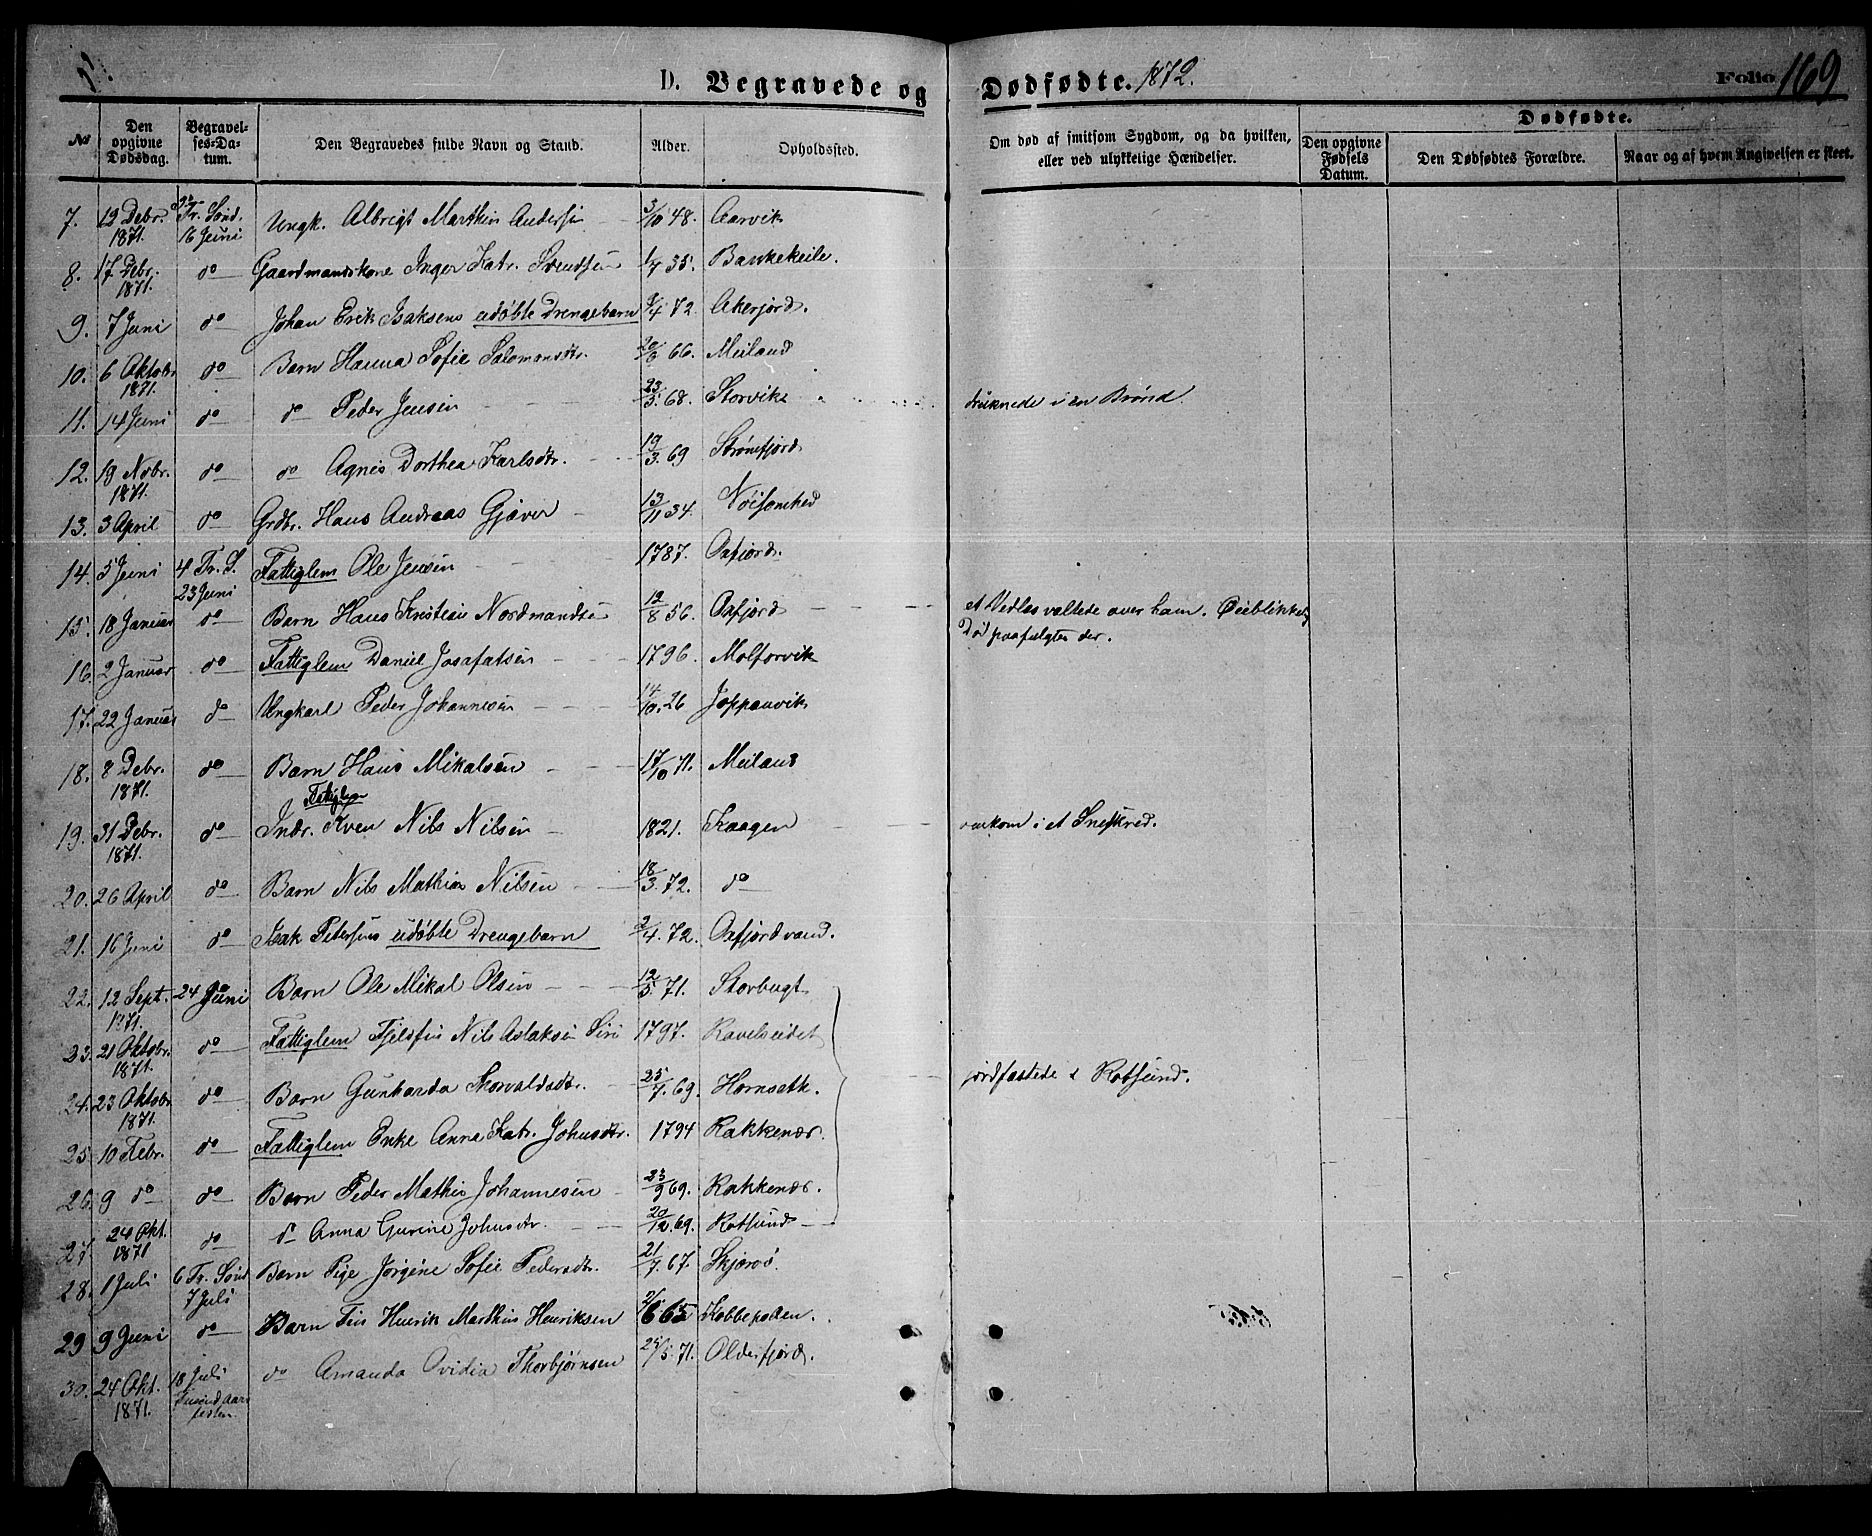 D. Begravede og Dødfødte. 1872. Folio 169
№ Den opgivne Dødsdag. Begravelses-Datum. Den Begravedes fulde Navn og Stand. Alder. Opholdssted. Om død af smitsom Sygdom, og da hvilken, eller ved ulykkelige Hændelser. Dødfødte.
Den opgivne Fødsels Datum. Den Dødfødtes Forældre. Naar og af hvem Angivelsen er skeet.
7. 19 Debr. 1871. Tr. Sønd. 16 Juni Ungk. Albrigt Marthin Andersen 3/10 48. Aarvik
8. 17 Debr. 1871. do Gaardmandskone Inger Katr. Svendsen 1/7 35. Bankekeile.
9. 7 Juni do Johan Erik Isaksens udøbte Drengebarn 9/4 72. Akerjord.
10. 6 Oktobr 1871. do Barn Hanna Sofie Salomonsdtr. 66. Meiland
11. 14 Juni do do Peder Jensen 23/3. 68. Storvik druknede i en Brønd.
12. 19 Nobr. 1871. do do Agnis Dorthea Karlsdtr. 19/3. 69 Strømfjord
13. 3 April do Grdbr. Hans Andreas Gjæver 13/11 34. Nøisomhed
14. 5 Juni 4 Tr. S. 23 Juni Fattiglem Ole Jensen 1787. Oxfjord.
15. 18 Januar do Barn Hans Kristian Nordmandsen 12/8 56. Oxfjord et Vedlas valtede over ham. Øieblikkelig
Død paafulgte der.
16. 2 Januar do Fattiglem Daniel Josafatsen 1796. Molforvik
17. 22 Januar do Ungkarl Peder Johannesen 14/10. 26 Joppanvik
18. 8 Debr. 1871. do Barn Hans Mikalsen 17/10 71. Meiland
Fattiglem
19. 31 Debr. 1871. do Indr. Kven Nils Nilsen 1821. Kaagen omkom i et Sneskred.
20. 26 April do Barn Nils Mathias Nilsen 18/3. 72. do
21. 16 Juni do Isak Petersens udøbte Drengebarn 2/4. 72. Oxfjordvand.
22. 12 Sept. 1871. 24 Juni Barn Ole Mikal Olsen 12/5. 71. Storbugt
23. 21 Oktobr. 1871. do Fattiglem Fjelfin Nils Aslaksen Siri 1797. Ravelseidet
24. 23 Oktobr 1871. do Barn Gunharda Thorvaldsdtr. 25/7. 69. Hamnæth. jordfæstede i Rotsund.
25. 10 Febr. do Fattiglem Enke Anna Katr. Johnsdtr. 1794 Rakkenæs.
26. 9 do do Barn Peder Mathis Johannesen 23/9 69. Rakkenæs.
27. 24 Okt. 1871 do do Anna Gurine Johnsdtr. 20/12. 69. Rotsund
28. 1 Juli 6 Tr. Sønd 7 Juli Barn Pige Jørgine Sofie Pedersdtr. 21/7. 67. Skjærvø.
29 9 Juni do Barn Fin Henrik Marthin Henriksen 65 Kobbepollen.
30. 24 Okt. 1871. 18 Juli do Amanda Ovidia Thorbjørnsen 71. Olderfjord.